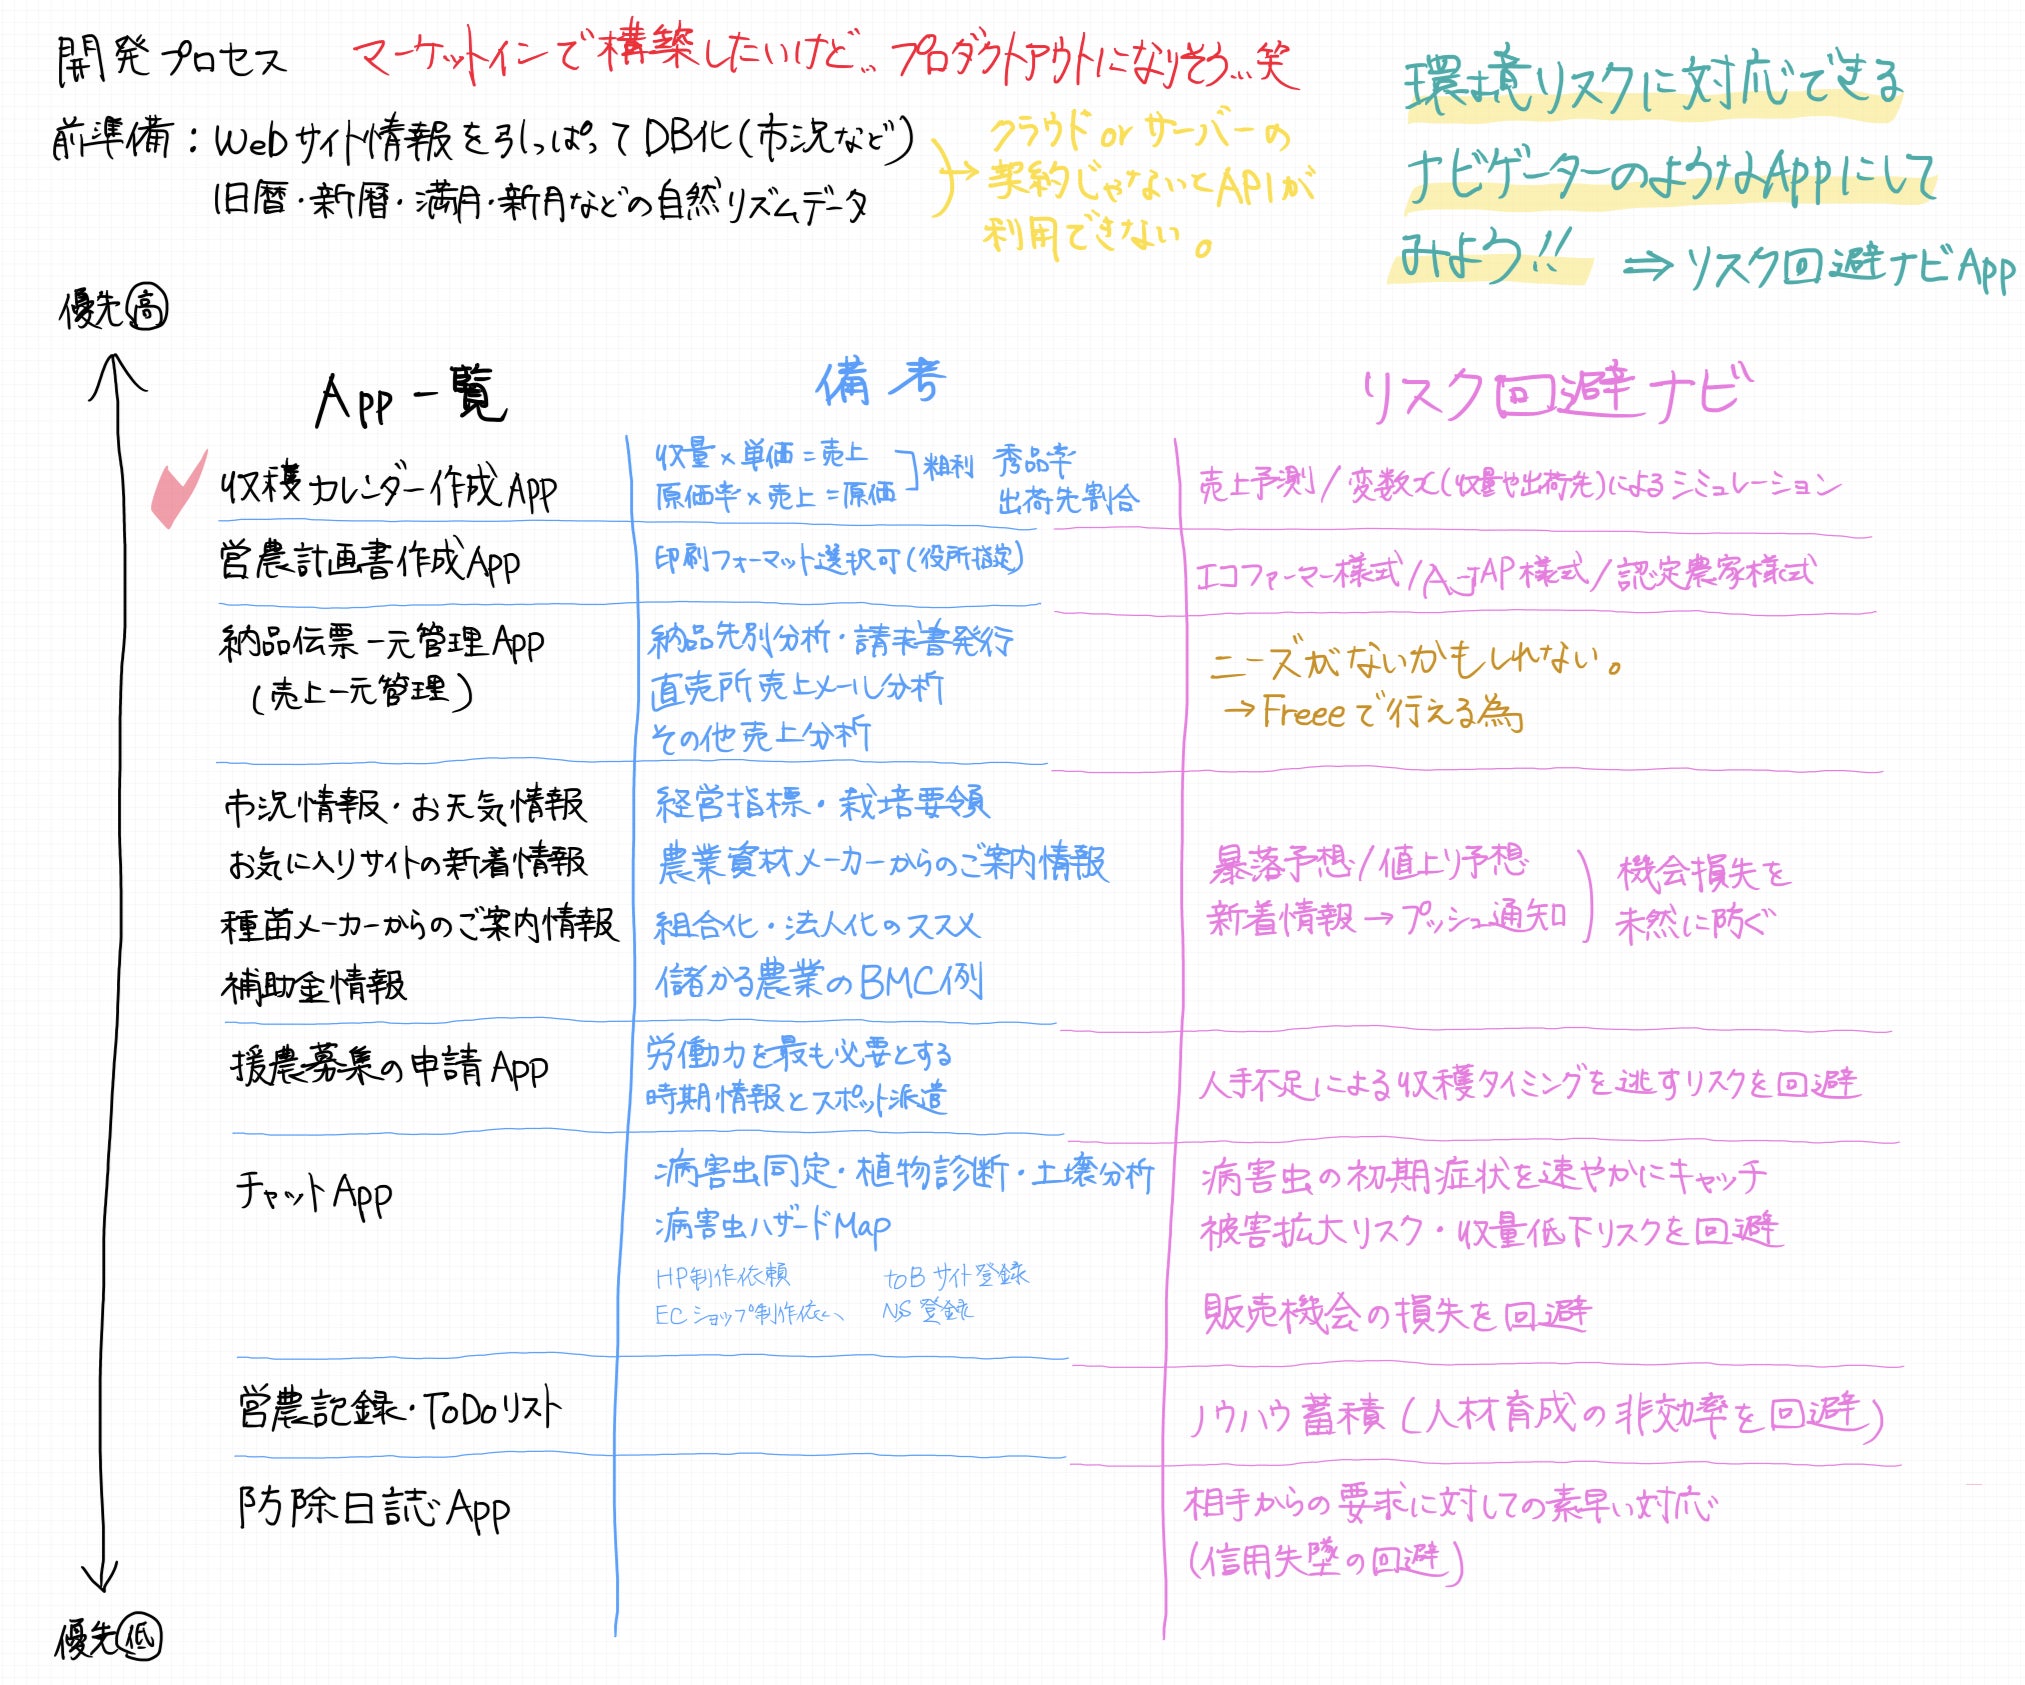 開発プロセス マーケットインで構築したいけど、、プロダクトアウトになりそう...笑
前準備：Webサイト情報を引っぱってDB化(市況など)
旧暦・新暦・満月・新月などの自然リズムデータ
クラウドorサーバーの
契約じゃないとAPIが
利用できない。
環境リスクに対応できる
ナビゲーターのようなAppにして
みよう!!
⇒リスク回避ナビApp
優先高
App一覧 備考 リスク回避ナビ
収穫カレンダー作成App
収量×単価=売上
原価率×売上=原価
粗利
秀品率
出荷先割合
売上予測/変数X(収量や出荷先)によるシミュレーション
営農計画書作成App
印刷フォーマット選択可(役所指定)
エコファーマー様式/A-JAP様式/認定農家様式
納品伝票一元管理App
(売上一元管理)
納品先別分析・請求書発行
直売所売上メール分析
その他売上分析
ニーズがないかもしれない。
→Freeeで行える為
市況情報・お天気情報
お気に入りサイトの新着情報
種苗メーカーからのご案内情報
補助金情報
経営指標・栽培要領
農業資材メーカーからのご案内情報
組合化・法人化のススメ
儲かる農業のBMC例
暴落予想/値上り予想
新着情報→プッシュ通知
機会損失を
未然に防ぐ
援農募集の申請App
労働力を最も必要とする
時期情報とスポット派遣
人手不足による収穫タイミングを逃すリスクを回避
チャットApp
病害虫同定・植物診断・土壌分析
病害虫ハザードMap
HP制作依頼 toBサイト登録
ECショップ制作依 NS登録
病害虫の初期症状を速やかにキャッチ
被害拡大リスク・収量低下リスクを回避
販売機会の損失を回避
営農記録・ToDoリスト
ノウハウ蓄積(人材育成の非効率を回避)
防除日誌App
相手からの要求に対しての素早い対応
(信用失墜の回避)
優先低